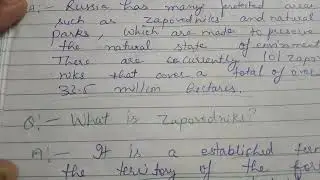 A:- Russia has many protected areas
such as zapovedniks and natural
Parks, which are made to preserve
the natural state of environment
There are cocurrently 101 zapo
niks that cover a total of over
33.5 million hectares.
Q:- What is Zapovedniks?
A:- It is a established term
the territory of the for